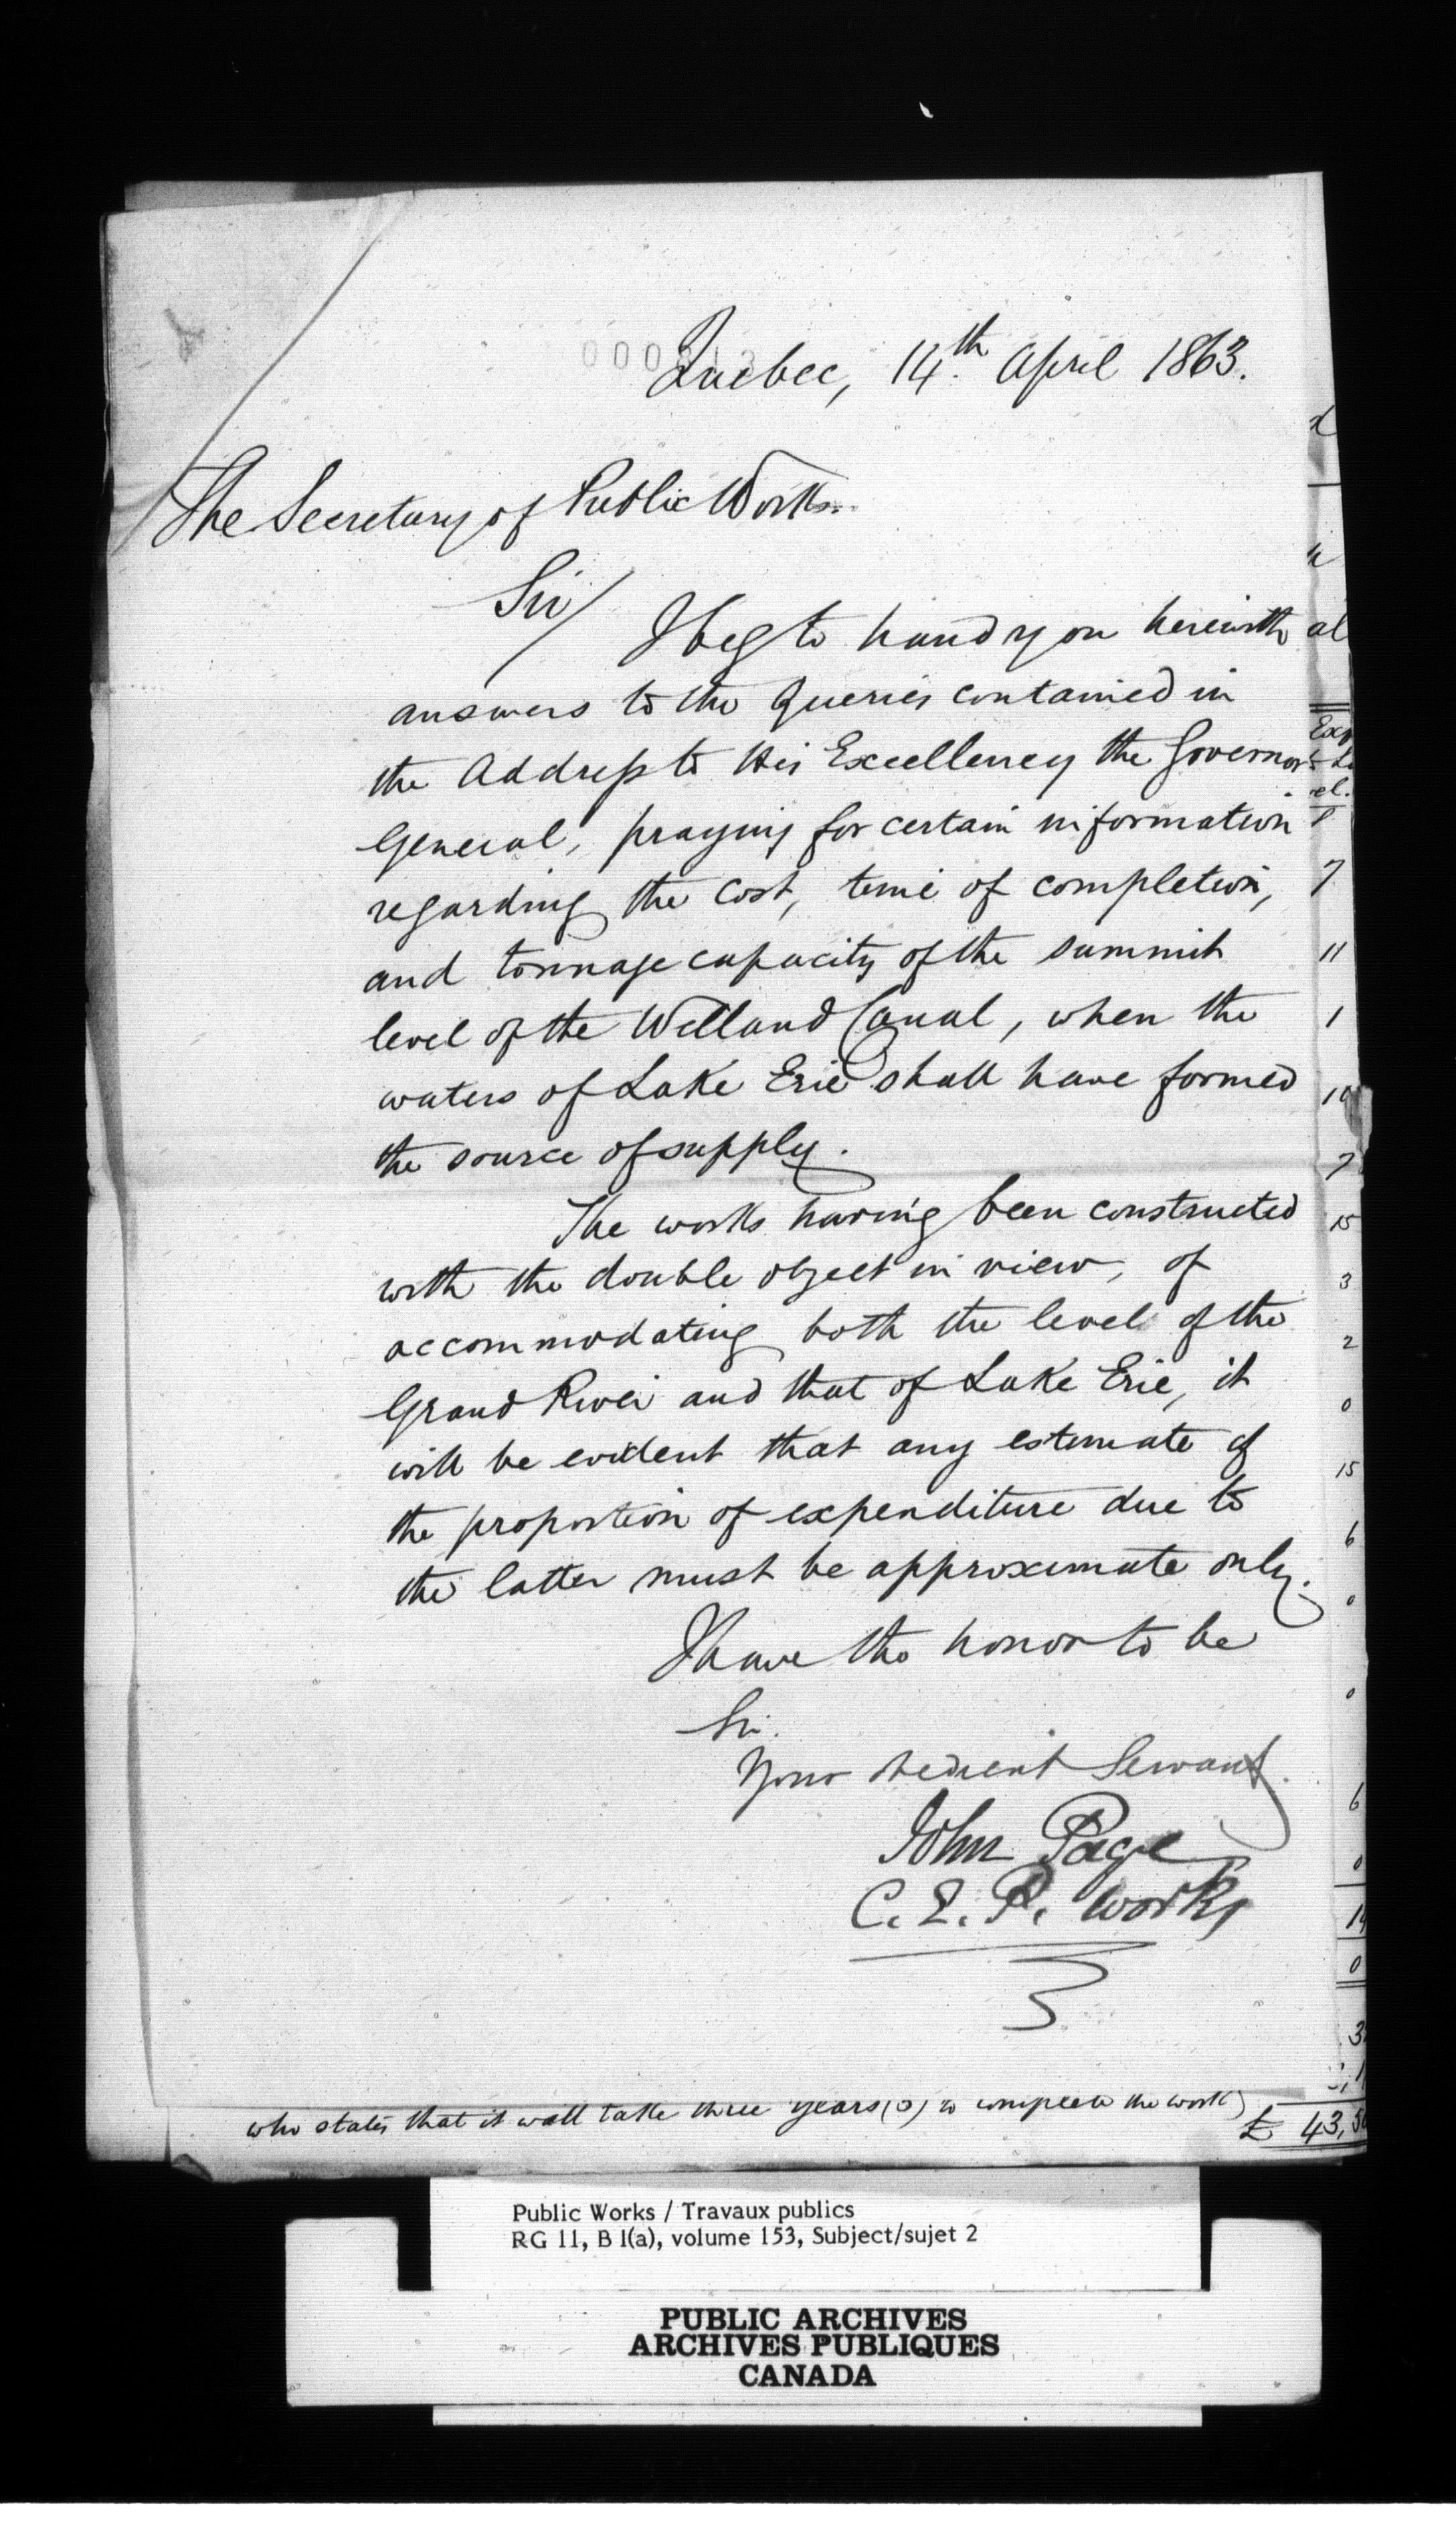 Quebec, 14th April 1863.
The Secretary of Public Works.
Sir/
I beg to hand you herewith
answers to the Queries contained in
the Address to His Excellency the Governor
General, praying for certain information
regarding the Cost, time of completion,
and tonnage capacity of the summit
level of the Welland Canal, when the
waters of Lake Erie shall have formed
the source of supply.
The works having been constructed
with the double object in view, of
accommodating both the level of the
Grand River and that of Lake Erie, it
will be evident that any estimate of
the proportion of expenditure due to
the latter must be approximate only.
I have the honor to be
Sir.
Your obedient Servant.
John Page
C. E. P. Works
al
7
11
1
10
7
15
3
2
0
15
6
0
0
6
0
14
0
who states that it will take three years (3) to complete the work)
£ 43,
Public Works / Travaux publics
RG 11, B 1(a), volume 153, Subject/sujet 2
PUBLIC ARCHIVES
ARCHIVES PUBLIQUES
CANADA